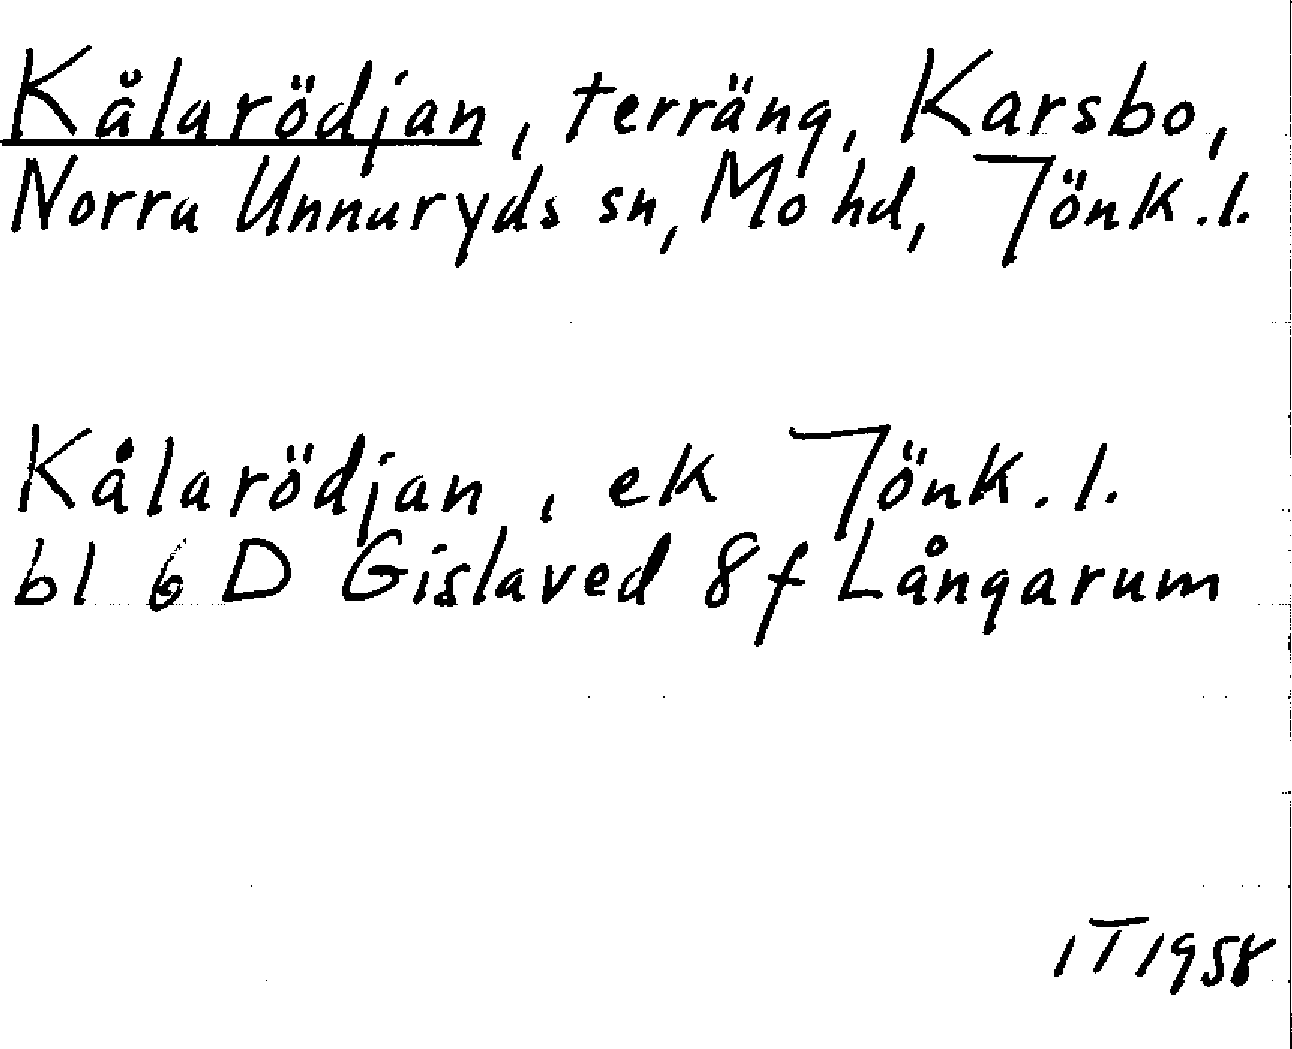 Kålarödjan, terräng, Karsbo,
Norra Unnaryds sn, Mo hd, Jönk.l.
Kålarödjan, ek Jönk.l.
bl 6 D Gislaved 8f Långarum
IT 1958